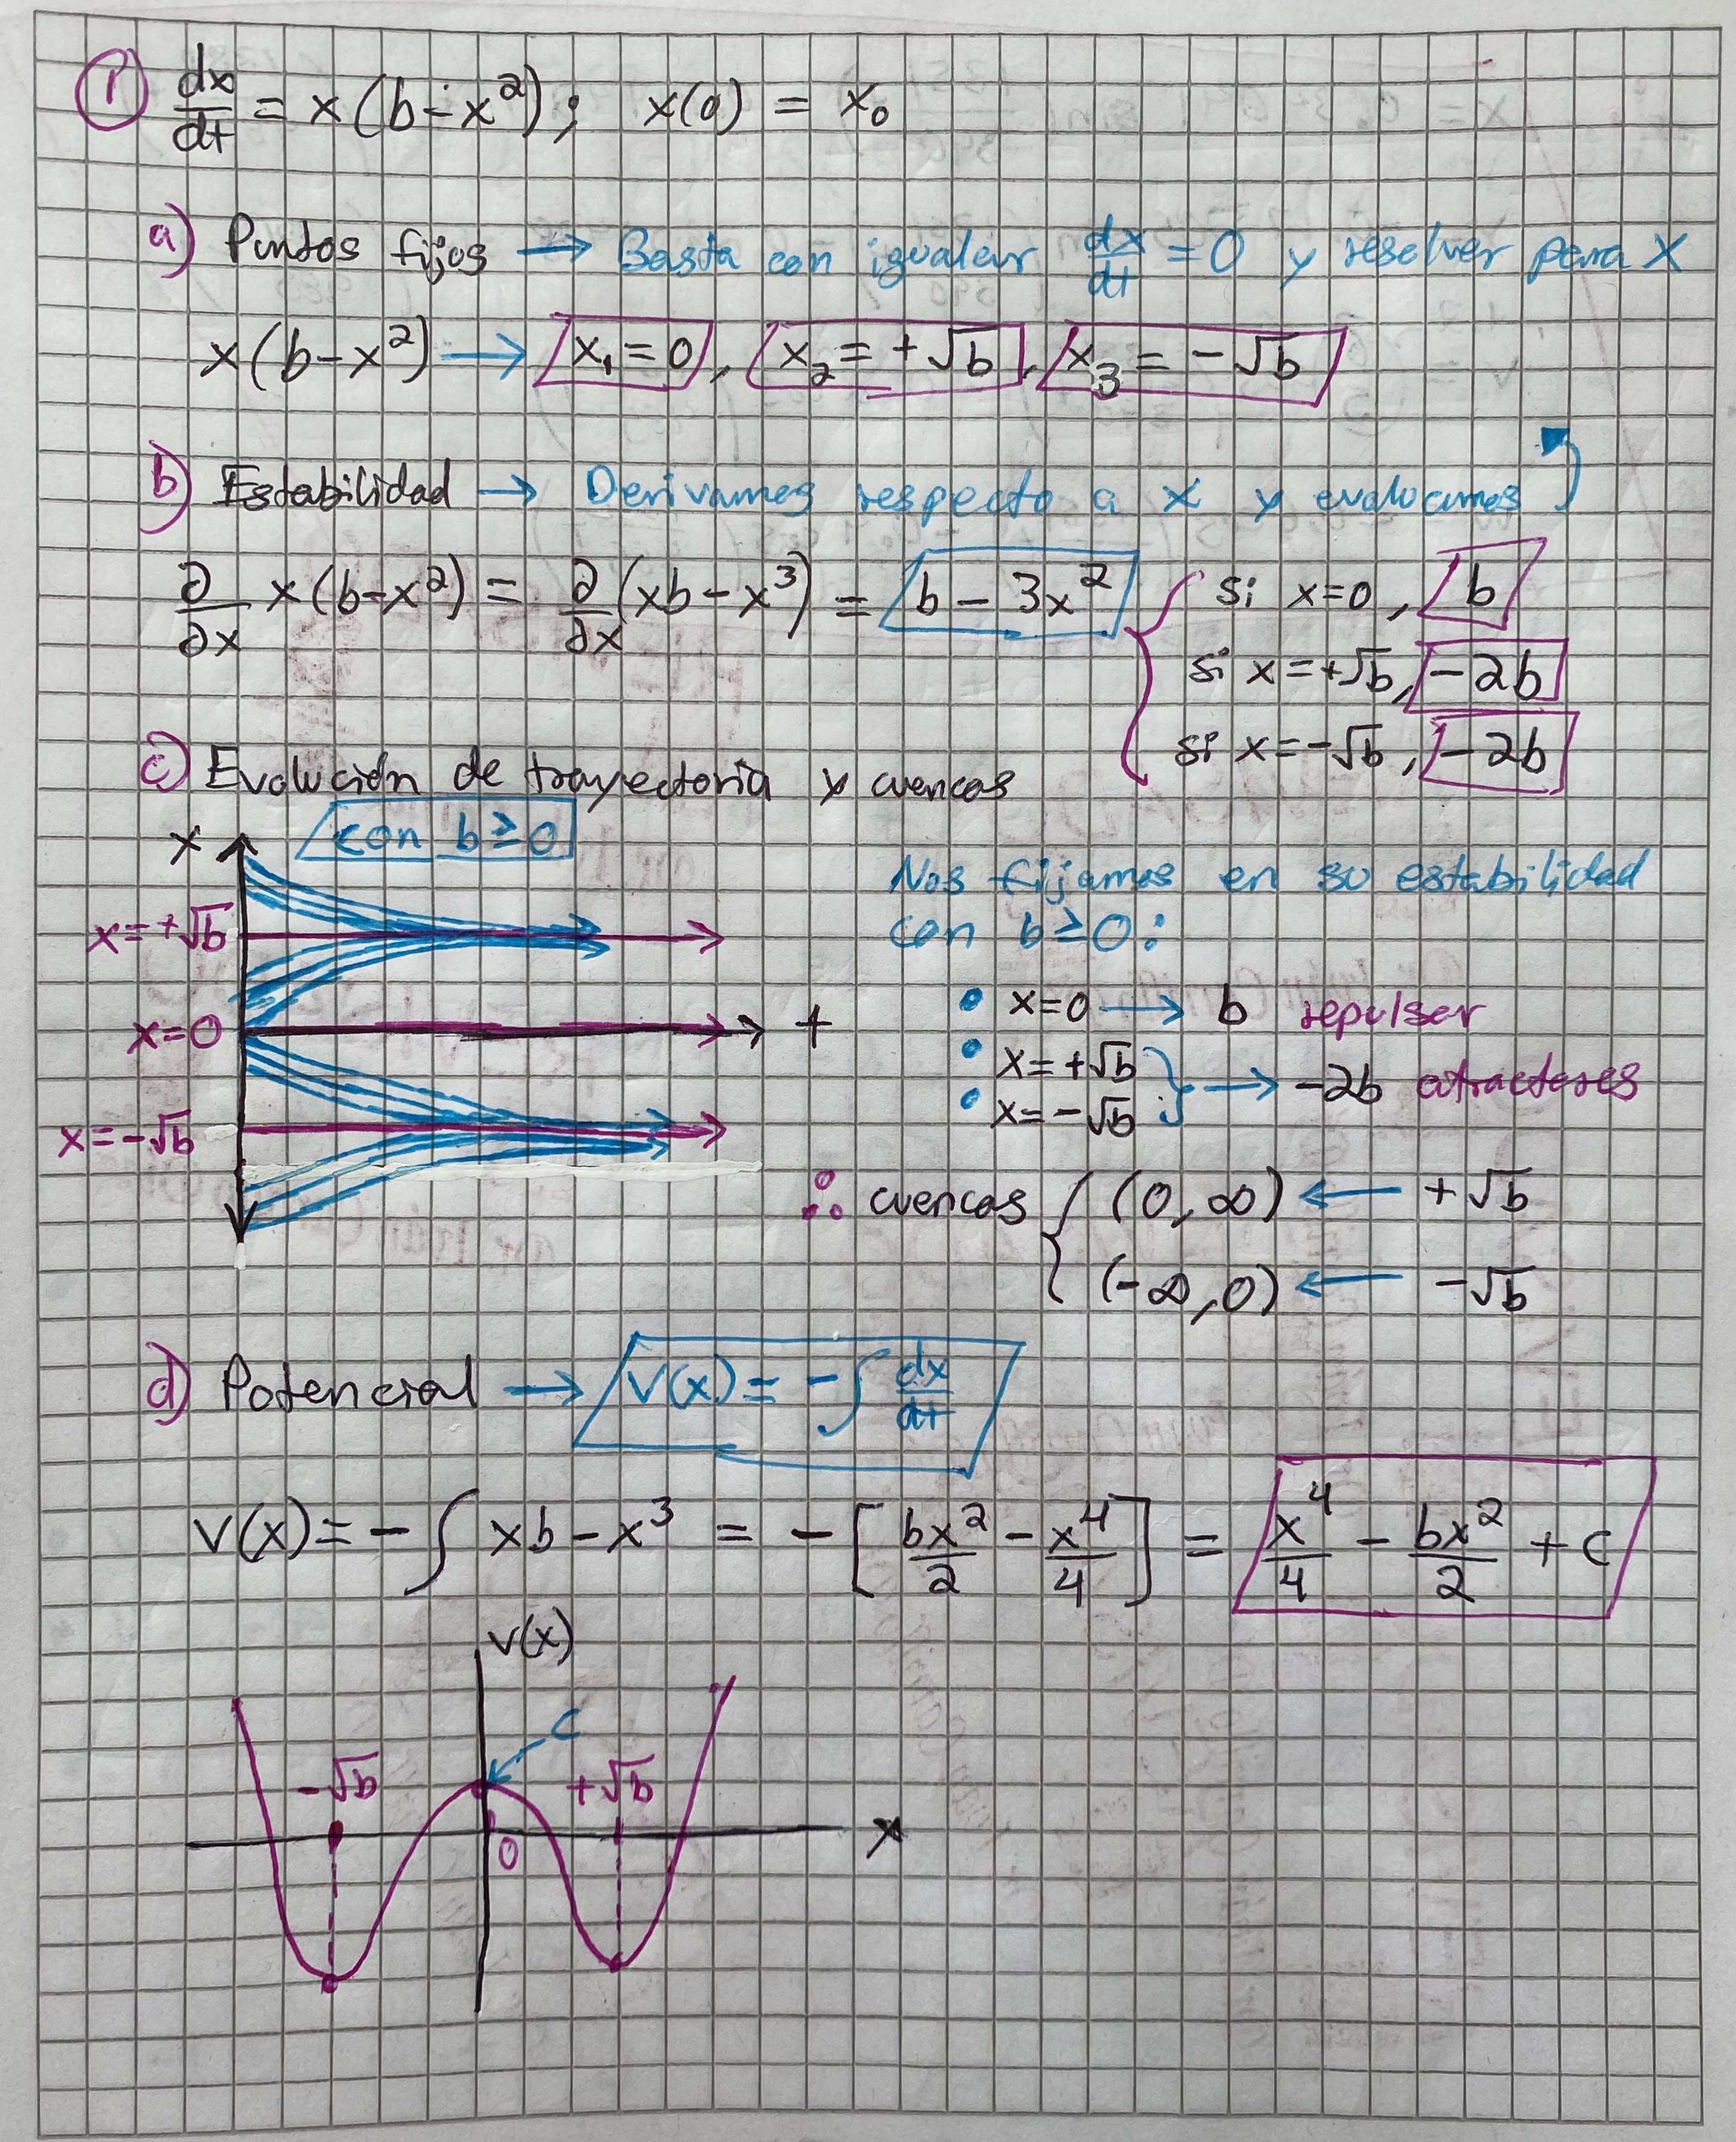 ① dx/dt = x(b-x²); x(0) = x₀
a) Puntos fijos → Basta con igualar dx/dt = 0 y resolver para X
x(b-x²) → x₁ = 0, x₂ = +√b, x₃ = -√b
b) Estabilidad → Derivamos respecto a x y evaluamos
∂/∂x x(b-x²) = ∂/∂x (xb-x³) = b - 3x²
si x=0, b
si x=+√b, -2b
si x=-√b, -2b
c) Evolución de trayectoria y cuencas
con b≥0
x
x=+√b
x=0
t
x=-√b
Nos fijamos en su estabilidad
con b≥0:
• x=0 → b repulsor
• x=+√b
• x=-√b
→ -2b atractores
∴ cuencas
(0, ∞) ← +√b
(-∞, 0) ← -√b
d) Potencial → V(x) = -∫ dx/dt
V(x) = -∫ xb - x³ = -[bx²/2 - x⁴/4] = x⁴/4 - bx²/2 + C
V(x)
C
-√b
+√b
0
x